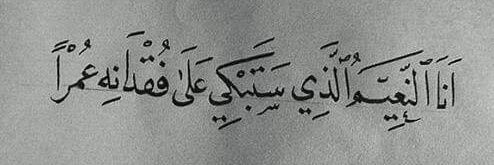 أَنَا ٱلنَّعِيْمُ ٱلَّذِي سَتَبْكِي عَلَىٰ فُقْدَانِهِ عُمْرًا